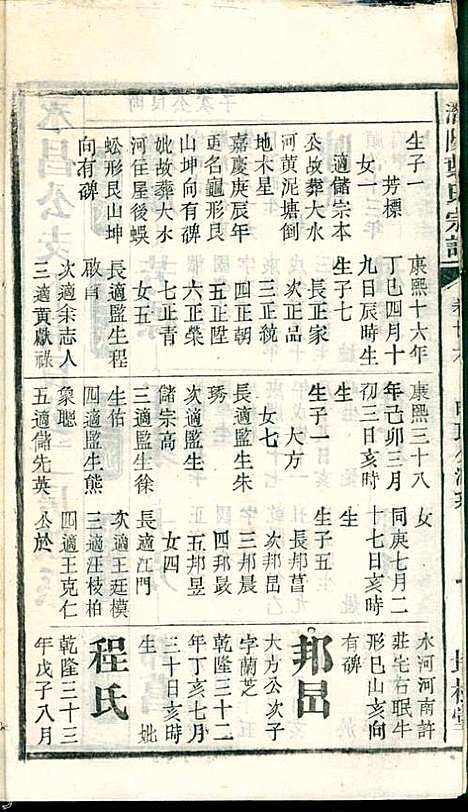 生子一
芳標
女一
適儲宗本
公故葬大水
河黄泥塘倒
地木星
嘉慶庚辰年
更名龜形艮
山坤向有碑
妣故葬大水
河住屋後蜈
蚣形艮山坤
向有碑
康熙十六年
丁巳四月十
九日辰時生
生子七
長正家
次正品
三正統
四正朝
五正陞
六正榮
七正青
女五
長適監生程
啟自
次適余志人
三適黄獻祿
康熙三十八
年己卯三月
初三日亥時
生
生子一
大方
女七
長適監生朱
琇
次適
儲宗高
三適監生徐
生佑
四適監生熊
象聰
五適儲先英
女
同庚七月二
十七日亥時
生
生子五
長邦菖
次邦昂乙
三邦晨
四邦最
五邦昱
女四
長適江門
次適王廷模
三適汪枝柏
四適王克仁
公於
水河河南許
莊宅右眠牛
形巳山亥向
有碑
邦昂
大方公次子
字蘭芝
乾隆三十二
年丁亥七月
三十日亥時
生
妣
程氏
乾隆三十三
年戊子八月